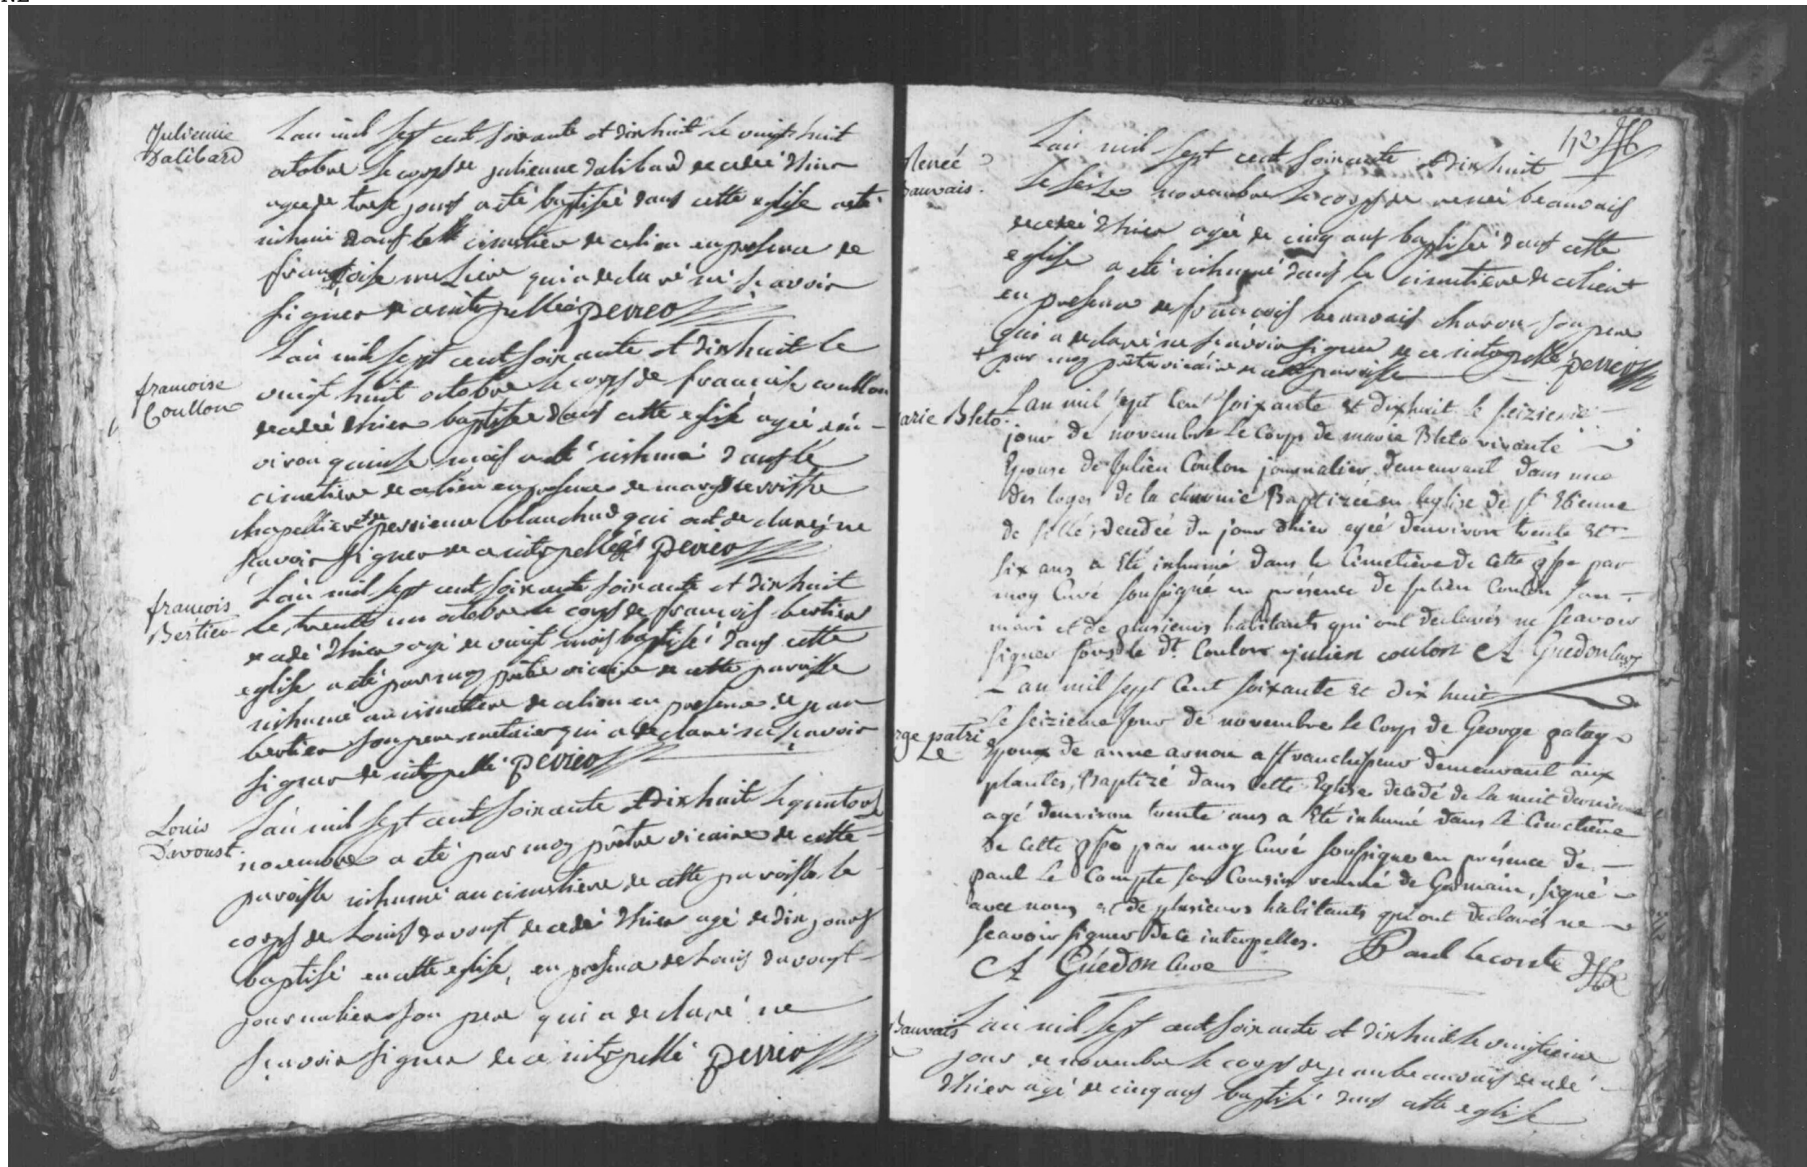 Julienne
Dalibard
L'an mil sept cent soixante et dix huit le vingt huit
octobre le corps de julienne dalibard decedée d'hier
agée de treze jours a été baptisée dans cette eglise a eté
inhumé dans le cimetiere de ce lieu en presence de
françoise qui a declaré ne sçavoir
signer de ce interpellée perrier
françoise
Coullon
L'an mil sept cent soixante et dix huit le
vingt huit octobre le corps de françoise coullon
decedée d'hier baptisée dans cette eglise agée d'en-
viron quinze mois a été inhumé dans le
cimetiere de ce lieu en presence de
chapellier et de perrienne blanchard qui ont declaré ne
sçavoir signer de ce interpellés perrier
françois
Bertier
L'an mil sept cent soixante soixante et dix huit
le trente un octobre le corps de françois bertier
decedé d'hier agé de vingt mois baptisé dans cette
eglise a été par moy prêtre vicaire de cette paroisse
inhumé au cimetiere de ce lieu en presence de jean
bertier son pere metaier qui a declaré ne sçavoir
signer de interpellé perrier
Louis
Davoust
L'an mil sept cent soixante et dix huit le quatorze
novembre a eté par moy prêtre vicaire de cette
paroisse inhumé au cimetiere de cette paroisse le
corps de Louis davoust decedé d'hier agé de dix jours
baptisé en cette eglise, en presence de Louis davoust
journalier son pere qui a declaré ne
sçavoir signer de ce interpellé perrier
Renée
Bauvais.
L'an mil sept cent soixante et dix huit
le seize novembre le corps de renée beauvais
decedée d'hier agée de cinq ans baptisée dans cette
eglise a eté inhumé dans le cimetiere de ce lieu +
en presence de françois beauvais charon son pere
qui a declaré ne sçavoir signer de ce interpellé perrier
+ par moy prêtre vicaire de cette paroisse
arie Bleto
L'an mil sept cent soixante et dix huit le seizieme
jour de novembre le Corps de marie Bleto vivante
Epouse de Julien Coulon journalier demeurant dans une
des loges de la Baptizée en leglise de st Etienne
de sillé, decedée du jour d'hier agée d'environ trente et
six ans a Eté inhumé dans le Cimetiere de cette psse par
moy Curé soussigné en présence de Julien Coulon son
mari et de plusieurs habitants qui ont declarés ne scavoir
signer fors le dt. Coulon julien coulon A Guedon Curé
L'an mil sept Cent soixante et dix huit
rge patri
Le seizieme jour de novembre le Corps de George patry
Epoux de anne arnou affranchisseur demeurant aux
plantes, Baptizé dans Cette Eglise decedé de la nuit derniere
agé d'environ trente ans a Eté inhumé dans le Cimetière
de Cette psse par moy Curé soussigné en présence de
paul Le Compte son Cousin de Germain, signé
avec nous et de plusieurs habitants qui ont declarés ne
scavoir signer de Ce interpelles. Paul leconte
A Guédon Curé
Bauvais
L'an mil sept cent soixante et dix huit le vingtieme
jour de novembre le corps de jean beauvais decedé
d'hier agé de cinq ans baptisé dans cette eglise